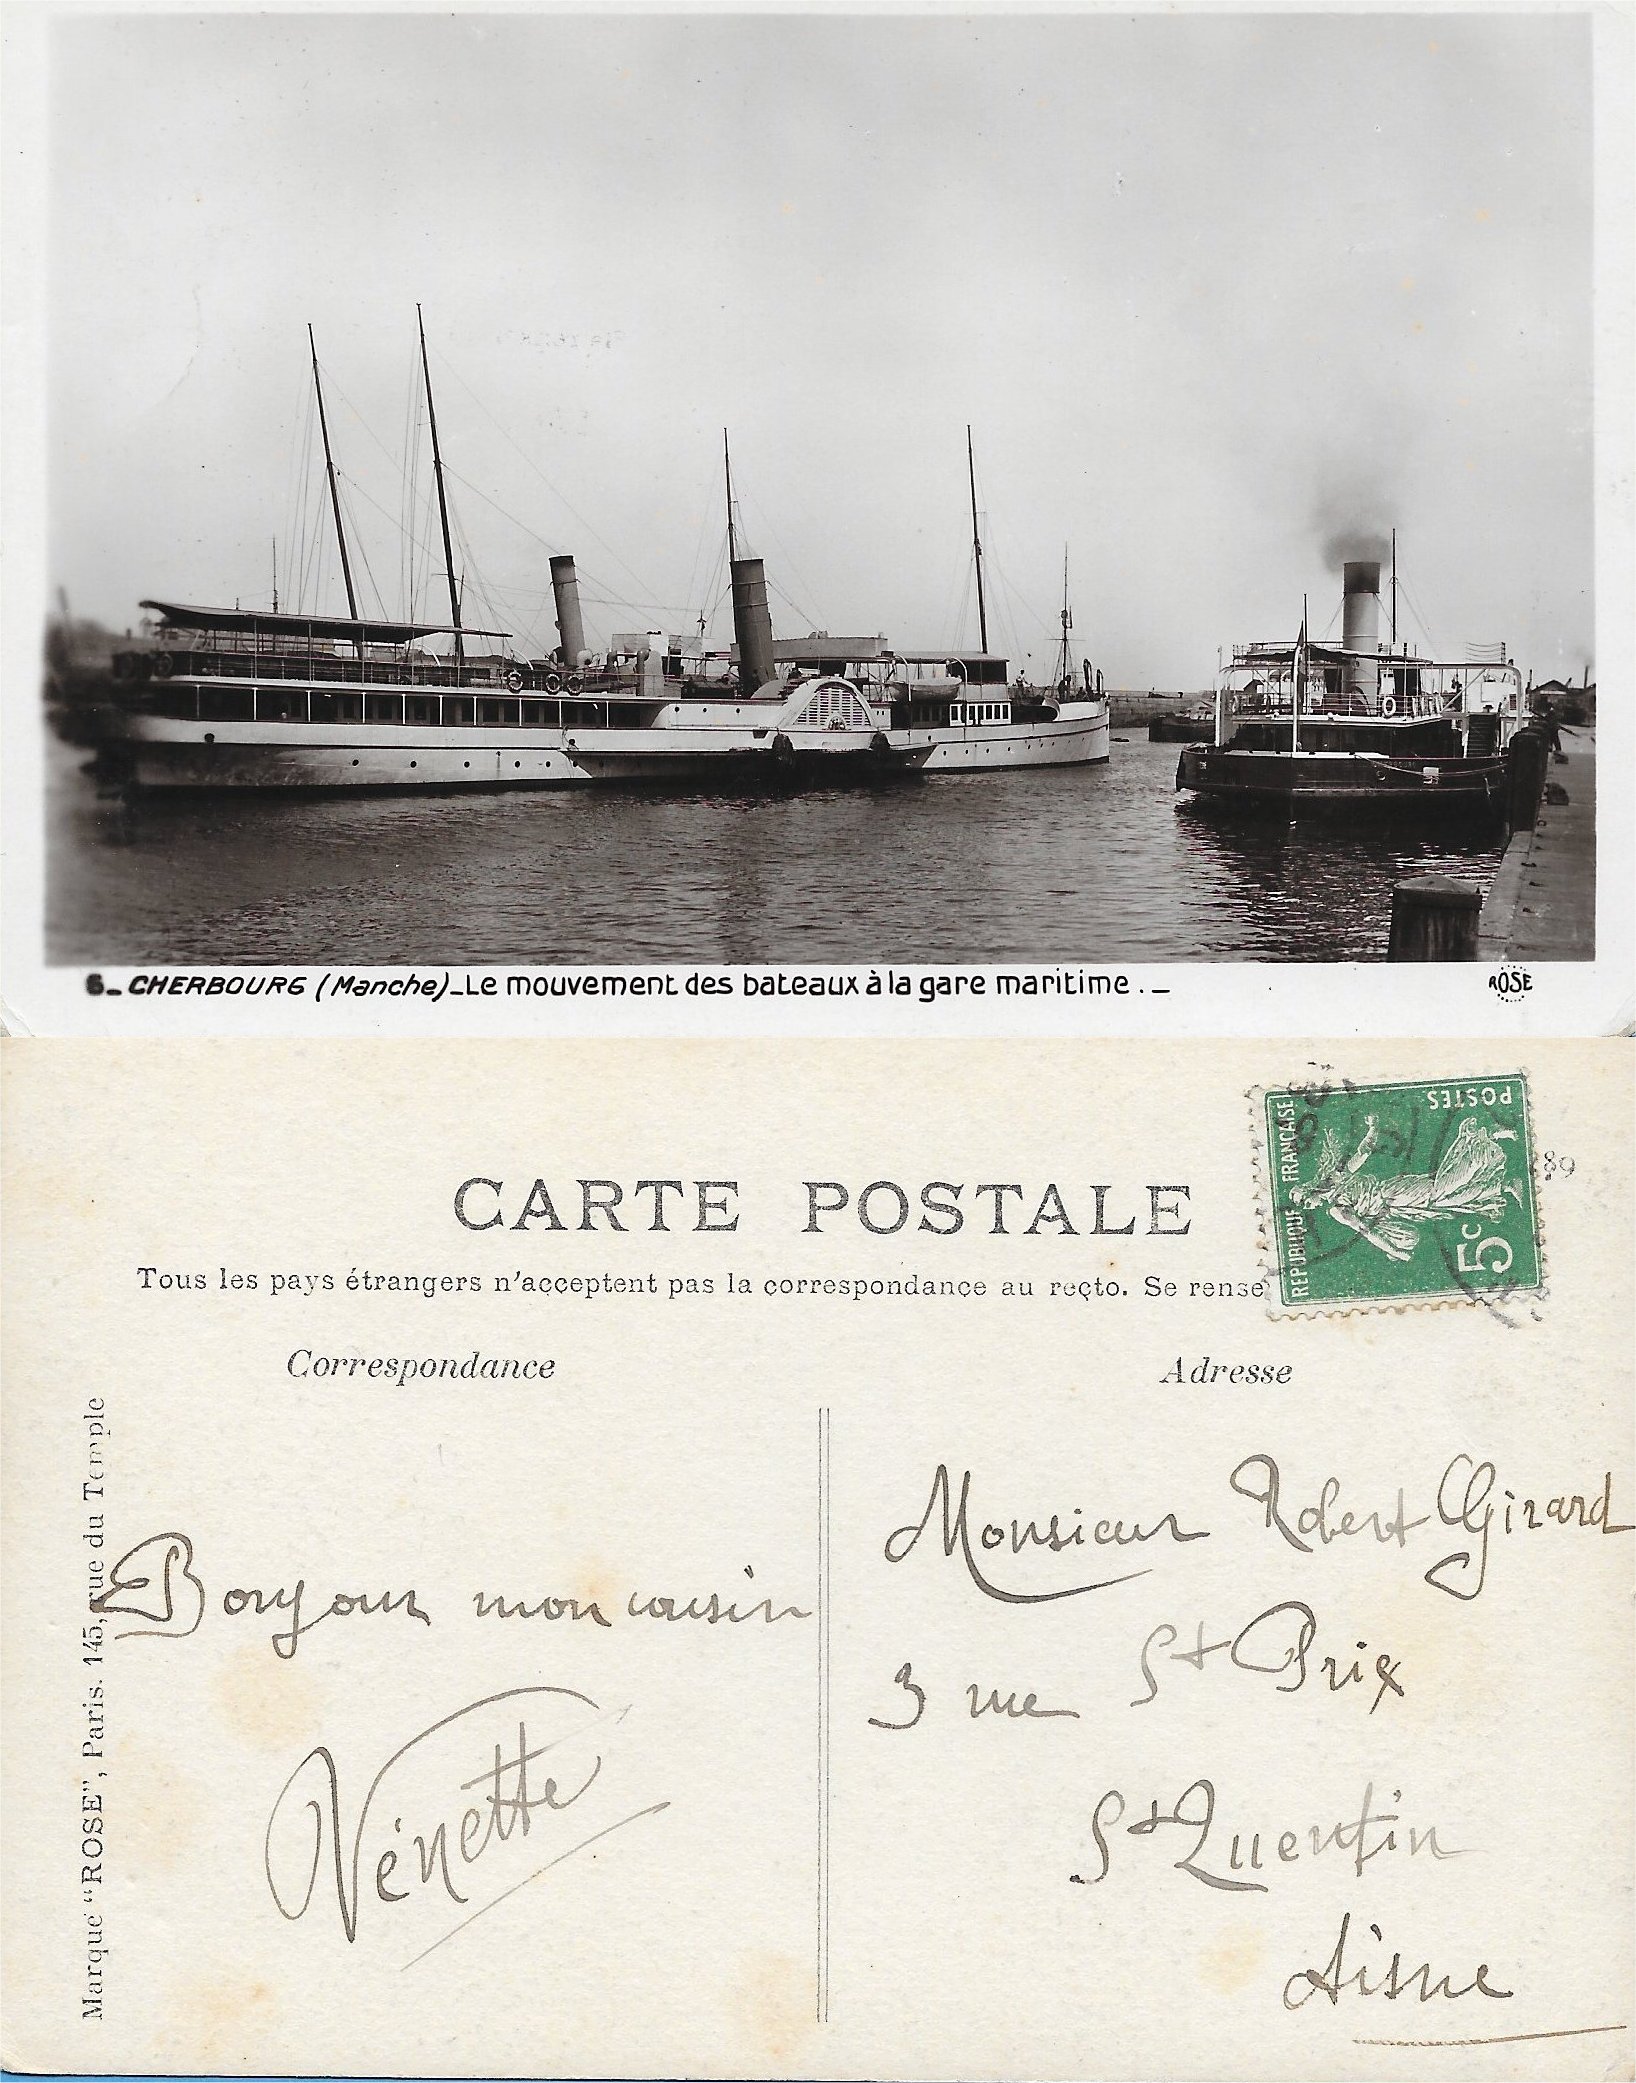 6_ CHERBOURG (Manche)_Le mouvement des bateaux à la gare maritime._
ROSE
CARTE POSTALE
Tous les pays étrangers n'acceptent pas la correspondance au recto. Se rense
REPUBLIQUE FRANÇAISE
POSTES
5c
Correspondance
Adresse
Marque "ROSE", Paris. 145, rue du Temple
Bonjour mon cousin
Nénette
Monsieur Robert Girard
3 rue St Prix
St Quentin
Aisne